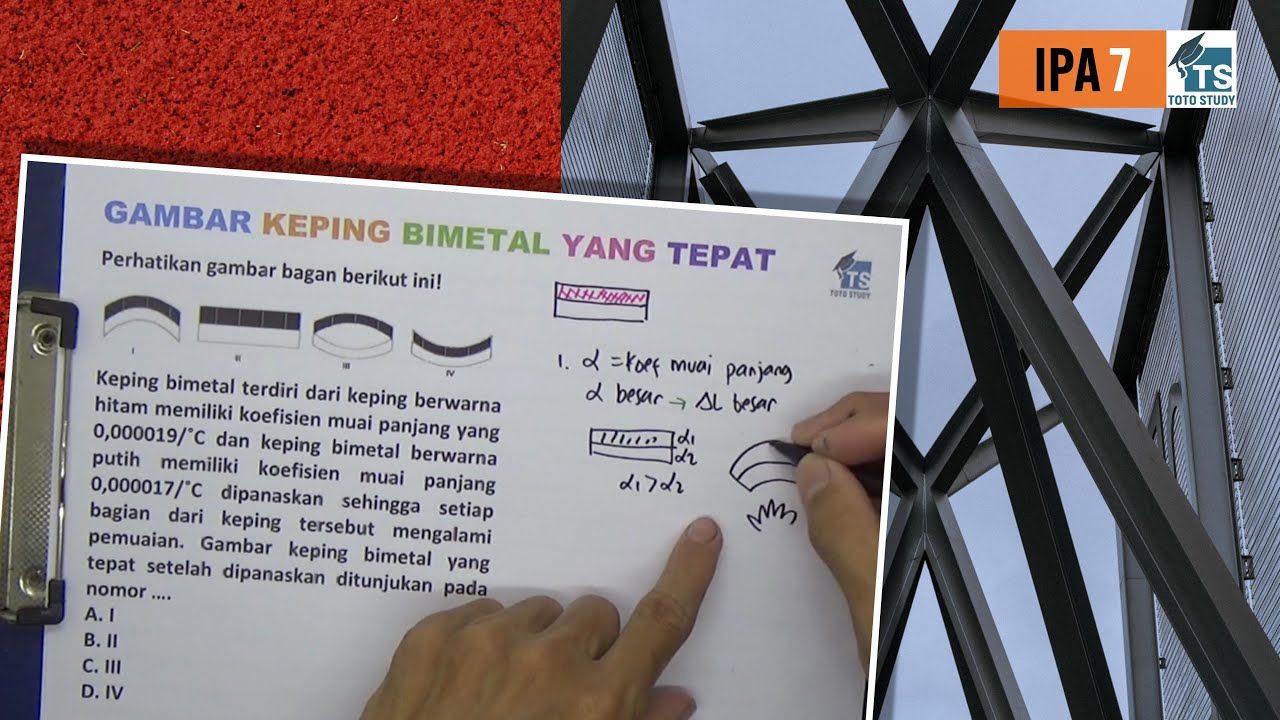 IPA 7
TS
TOTO STUDY
GAMBAR KEPING BIMETAL YANG TEPAT
Perhatikan gambar bagan berikut ini!
TS
TOTO STUDY
I
II
III
IV
Keping bimetal terdiri dari keping berwarna
hitam memiliki koefisien muai panjang yang
0,000019/°C dan keping bimetal berwarna
putih memiliki koefisien muai panjang
0,000017/°C dipanaskan sehingga setiap
bagian dari keping tersebut mengalami
pemuaian. Gambar keping bimetal yang
tepat setelah dipanaskan ditunjukan pada
nomor ....
A. I
B. II
C. III
D. IV
1. α = koef muai panjang
α besar → ΔL besar
α1
α2
α1 > α2